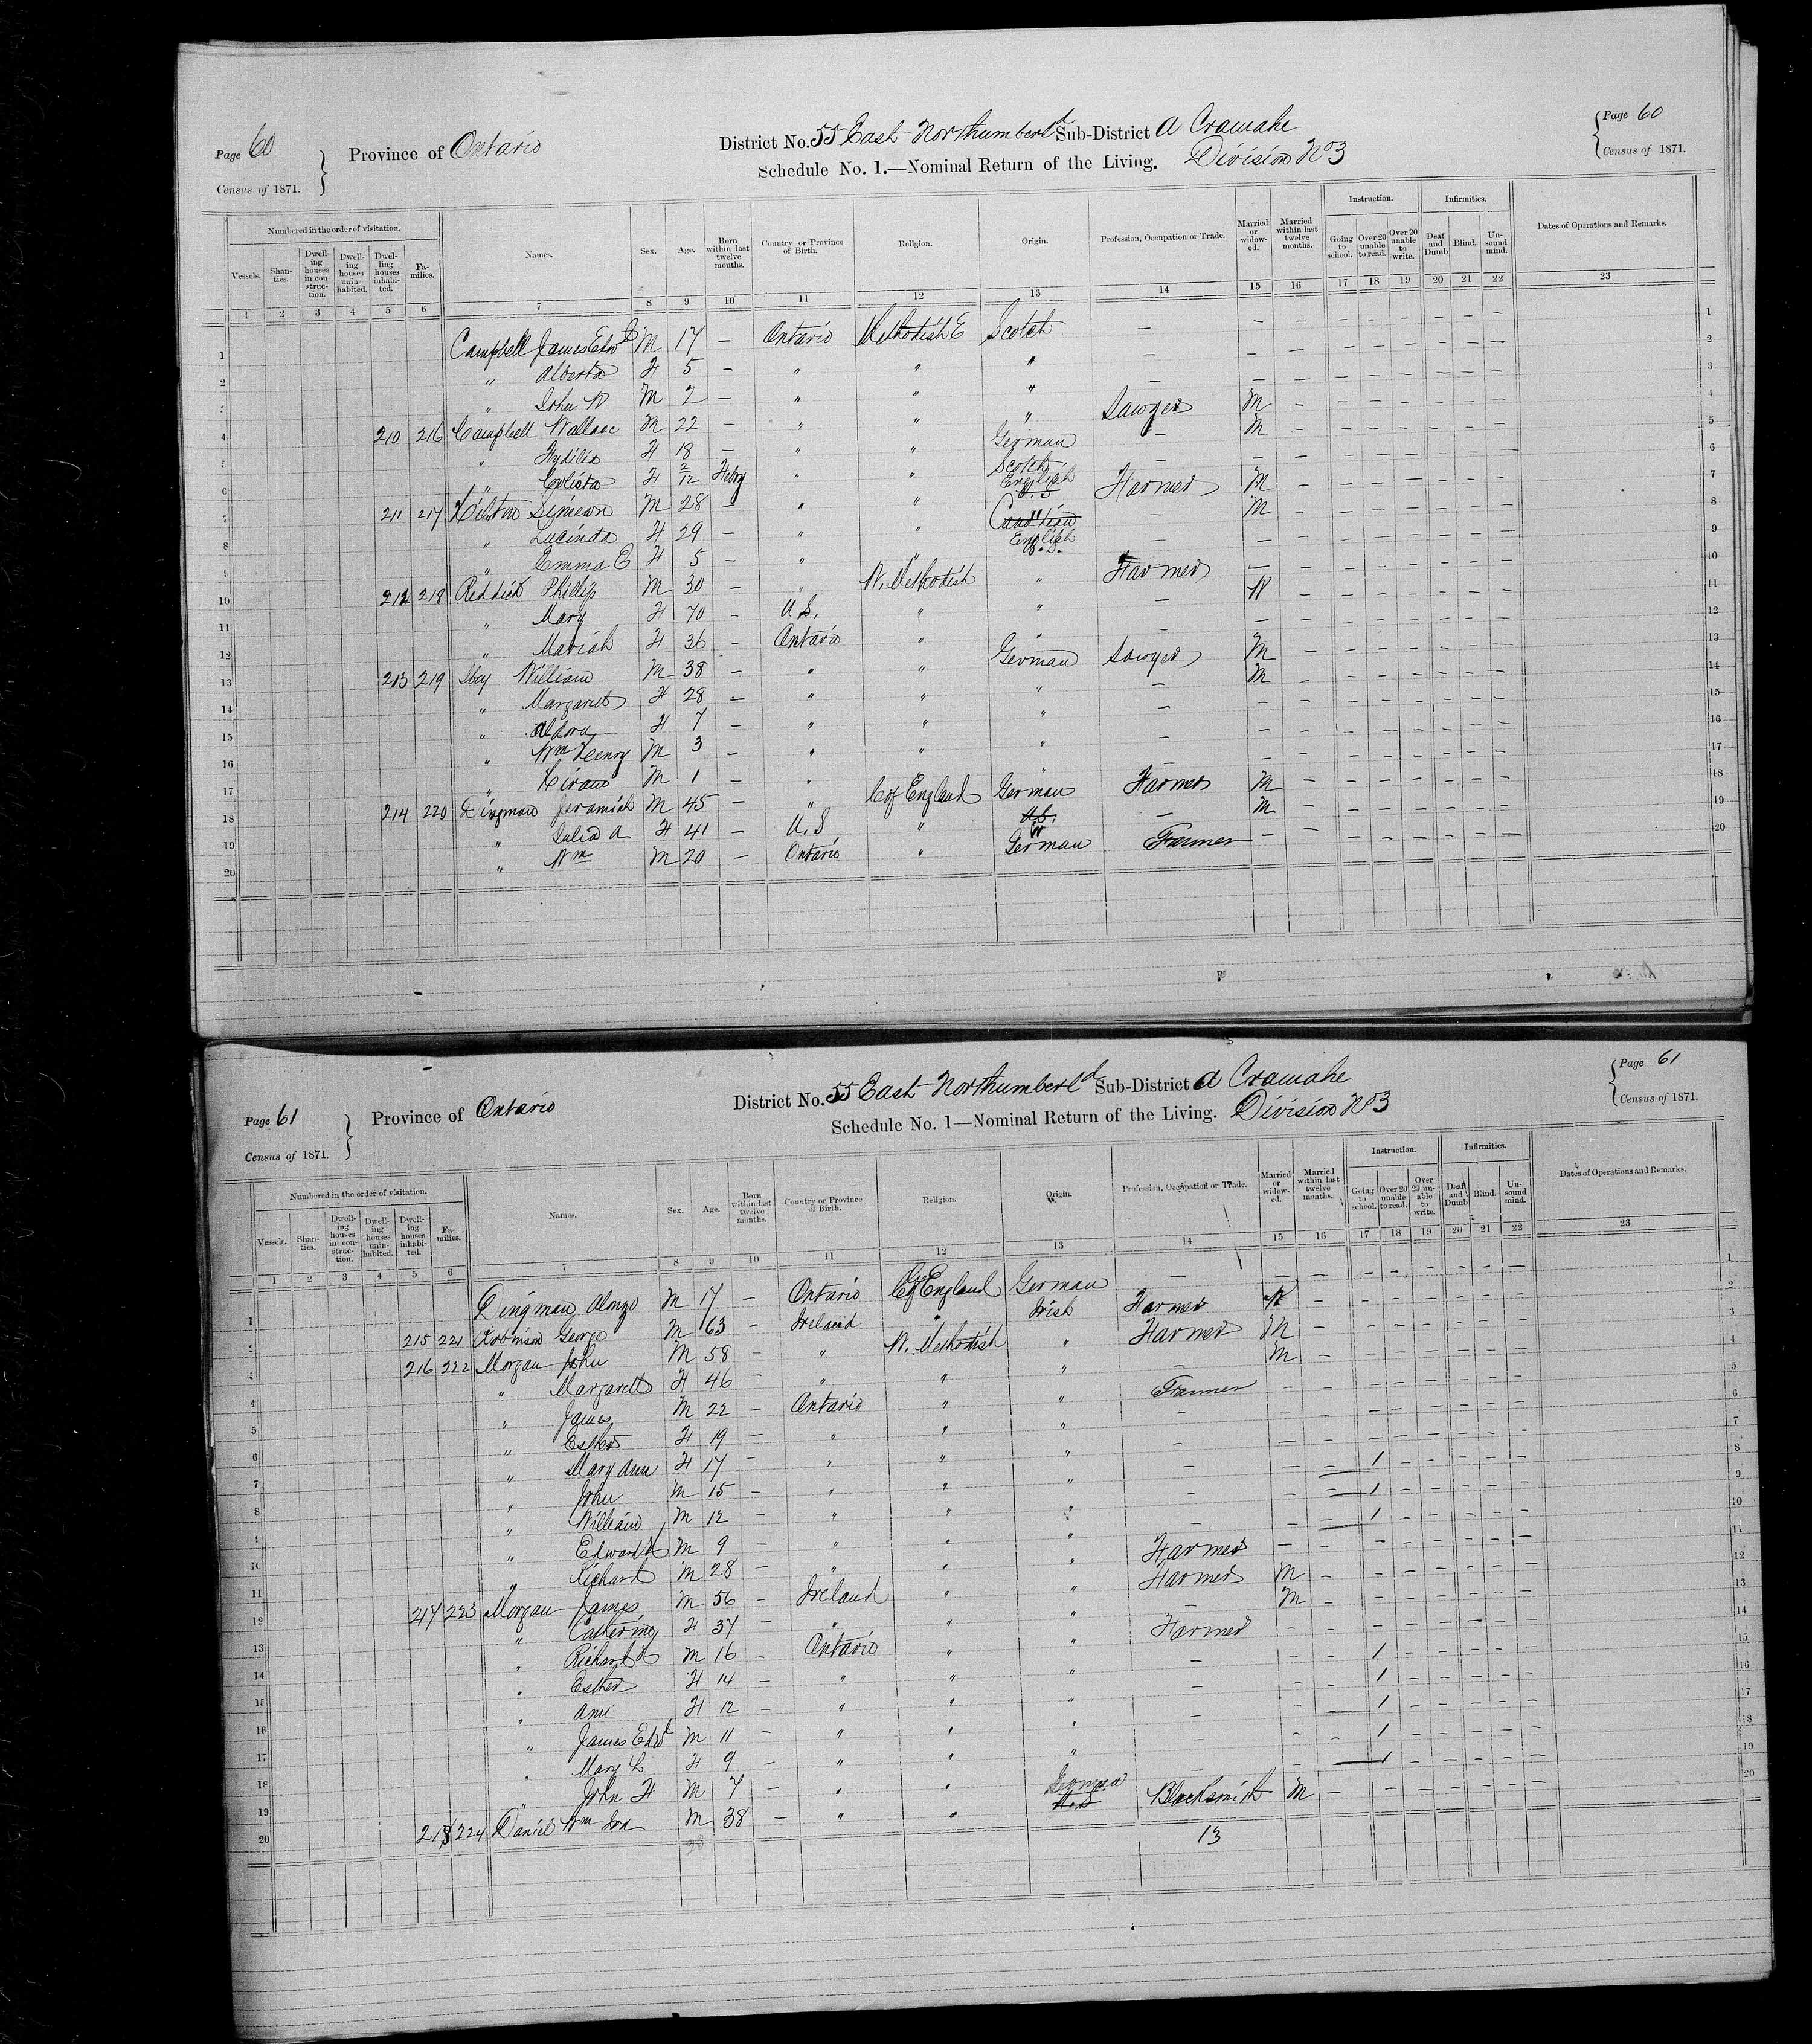 Page 60
Census of 1871.
Province of Ontario
District No. 55 East Northumberld Sub-District A Cramahe
Schedule No. 1.—Nominal Return of the Living. Division No 3
Page 60
Census of 1871.
Numbered in the order of visitation.
Instruction.
Infirmities.
Vessels. Shanties. Dwelling houses in construction. Dwelling houses uninhabited. Dwelling houses inhabited. Families. Names. Sex. Age. Born within last twelve months. Country or Province of Birth. Religion. Origin. Profession, Occupation or Trade. Married or widowed. Married within last twelve months. Going to school. Over 20 unable to read. Over 20 unable to write. Deaf and Dumb Blind. Unsound mind. Dates of Operations and Remarks.
1 2 3 4 5 6 7 8 9 10 11 12 13 14 15 16 17 18 19 20 21 22 23
1 Campbell James Edwd M 17 — Ontario Methodist E Scotch — — — — — — — — — 1
2 " Alberta F 5 — " " " — — — — — — — — — 2
3 " John W M 2 — " " " — — — — — — — — — 3
4 210 216 Campbell Wallace M 22 — " " " Sawyer M — — — — — — — 4
5 " F 18 — " " German — M — — — — — — — 5
6 " Calista F 2/12 Febry " " Scotch — — — — — — — — — 6
7 211 217 Hilton Simeon M 28 — " " English U.S Farmer M — — — — — — — 7
8 " Lucinda F 29 — " " — M — — — — — — — 8
9 " Emma E F 5 — " " English U.S. — — — — — — — — — 9
10 212 218 Reddick Phillip M 30 — " W. Methodist " Farmer — — — — — — — — 10
11 " Mary F 70 — U.S. " " — W — — — — — — — 11
12 " Mariah F 36 — Ontario " " — — — — — — — — — 12
13 213 219 William M 38 — " " German Sawyer M — — — — — — — 13
14 " Margarett F 28 — " " " — M — — — — — — — 14
15 " Aldora F 7 — " " " — — — — — — — — — 15
16 " Wm Henry M 3 — " " " — — — — — — — — — 16
17 " Hiram M 1 — " " " — — — — — — — — — 17
18 214 220 Dingman Jeramiah M 45 — " C of England German Farmer M — — — — — — — 18
19 " Julia A F 41 — U.S. " U.S. — M — — — — — — — 19
20 " Wm M 20 — Ontario " German Farmer — — — — — — — — 20
Page 61
Census of 1871.
Province of Ontario
District No. 55 East Northumberld Sub-District A Cramahe
Schedule No. 1—Nominal Return of the Living. Division No 3
Page 61
Census of 1871.
Numbered in the order of visitation.
Instruction.
Infirmities.
Vessels. Shanties. Dwelling houses in construction. Dwelling houses uninhabited. Dwelling houses inhabited. Families. Names. Sex. Age. Born within last twelve months. Country or Province of Birth. Religion. Origin. Profession, Occupation or Trade. Married or widowed. Married within last twelve months. Going to school. Over 20 unable to read. Over 20 unable to write. Deaf and Dumb Blind. Unsound mind. Dates of Operations and Remarks.
1 2 3 4 5 6 7 8 9 10 11 12 13 14 15 16 17 18 19 20 21 22 23
1 Dingman Alonzo M 17 — Ontario C of England German — — — — — — — — — 1
2 215 221 Robinson George M 63 — Ireland " Irish Farmer W — — — — — — — 2
3 216 222 Morgan John M 58 — " W. Methodist " Farmer M — — — — — — — 3
4 " Margarett F 46 — " " " — M — — — — — — — 4
5 " James M 22 — Ontario " " Farmer — — — — — — — — 5
6 " Esther F 19 — " " " — — — — — — — — — 6
7 " Mary Ann F 17 — " " " — — — — — — — — — 7
8 " John M 15 — " " " — — — 1 — — — — — 8
9 " William M 12 — " " " — — — 1 — — — — — 9
10 " Edward M 9 — " " " — — — 1 — — — — — 10
11 " Richard M 28 — " " " Farmer — — — — — — — — 11
12 217 223 Morgan James M 56 — Ireland " " Farmer M — — — — — — — 12
13 " Catherine F 37 — " " " — M — — — — — — — 13
14 " Richard M 16 — Ontario " " Farmer — — — — — — — — 14
15 " Esther F 14 — " " " — — — 1 — — — — — 15
16 " Ann F 12 — " " " — — — 1 — — — — — 16
17 " James Edwd M 11 — " " " — — — 1 — — — — — 17
18 " Mary L F 9 — " " " — — — 1 — — — — — 18
19 " John H M 7 — " " " — — — 1 — — — — — 19
20 218 224 Daniel Wm M 38 — " " German U.S Blacksmith M — — — — — — — 20
13